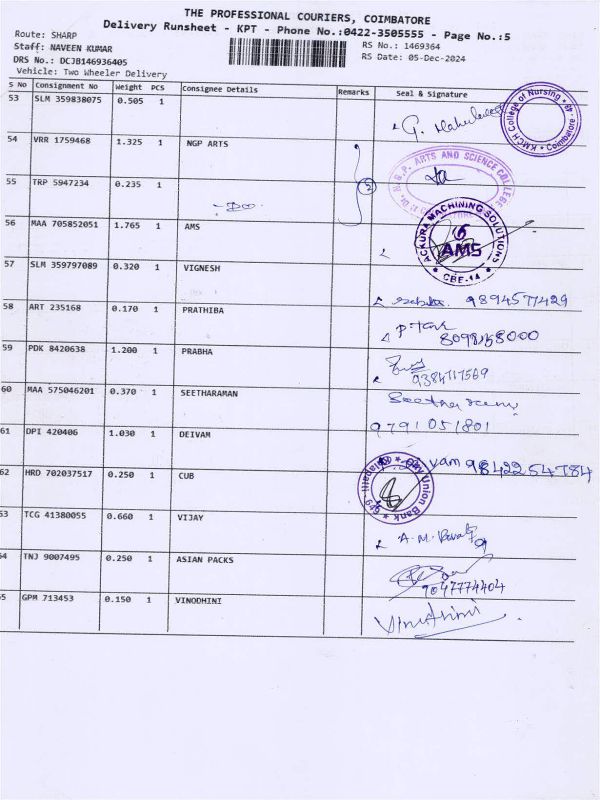 THE PROFESSIONAL COURIERS, COIMBATORE
Delivery Runsheet - KPT - Phone No.:0422-3505555 - Page No.:5
Route: SHARP
Staff: NAVEEN KUMAR
DRS No.: DCJB146936405
Vehicle: Two Wheeler Delivery
RS No.: 1469364
RS Date: 05-Dec-2024
S No Consignment No Weight PCS Consignee Details Remarks Seal & Signature
53 SLM 359838075 0.505 1
KMCH College of Nursing * Coimbatore - 48 *
54 VRR 1759468 1.325 1 NGP ARTS
N.G.P. ARTS AND SCIENCE COLLEGE
55 TRP 5947234 0.235 1
2
56 MAA 705852051 1.765 1 AMS
ACKURA MACHINING SOLUTIONS
AMS
* CBE-14 *
57 SLM 359797089 0.320 1 VIGNESH
9894577429
58 ART 235168 0.170 1 PRATHIBA
8098158000
59 PDK 8420638 1.200 1 PRABHA
9384717569
60 MAA 575046201 0.370 1 SEETHARAMAN
9791051801
61 DPI 420406 1.030 1 DEIVAM
9842254784
62 HRD 702037517 0.250 1 CUB
City Union Bank
63 TCG 41380055 0.660 1 VIJAY
A.M.
64 TNJ 9007495 0.250 1 ASIAN PACKS
9047774404
65 GPM 713453 0.150 1 VINODHINI
Vinothini